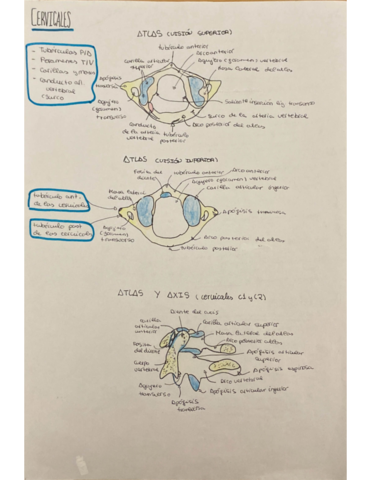 CERVICALES
- Tubérculos
- Forámenes
- Carillas
- Conducto
vertebral
surco
ATLAS (VISIÓN SUPERIOR)
tubérculo anterior
Arco anterior
Agujero (foramen) vertebral
Masa lateral del atlas
Carilla articular
superior
Apófisis
transversa
Agujero
(foramen)
transverso
Surco de la arteria vertebral
Arco posterior del atlas
Conducto
de la arteria
vertebral
tubérculo
posterior
ATLAS (VISIÓN INFERIOR)
Fosita del
diente
tubérculo anterior
Arco anterior
Agujero (foramen) vertebral
Carilla articular inferior
Masa lateral
del atlas
tubérculo ant.
de las cervicales
Apófisis transversa
tubérculo post.
de las cervicales
Agujero
(foramen)
transverso
Arco posterior del atlas
tubérculo posterior
ATLAS Y AXIS (cervicales C1 y C2)
Diente del axis
Carilla
articular
anterior
Carilla articular superior
Masa lateral del atlas
Arco posterior atlas
Apófisis articular
superior
Cuerpo
vertebral
Apófisis espinosa
Arco vertebral
Agujero
transverso
Apófisis articular inferior
Apófisis
transversa